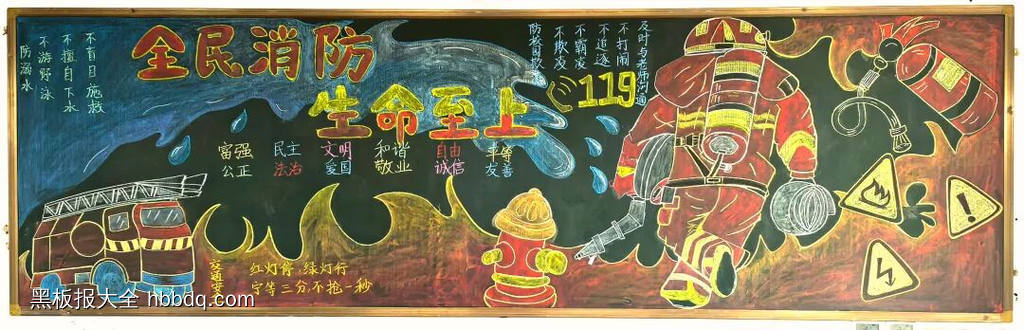 全民消防
生命至上
119
防溺水
不游野泳
不擅自下水
不盲目施救
防校园欺凌
不欺凌
不霸凌
不追逐
不打闹
及时与老师沟通
富强 民主 文明 和谐 自由 平等
公正 法治 爱国 敬业 诚信 友善
交通安
红灯停,绿灯行
宁等三分,不抢一秒
黑板报大全 hbbdq.com